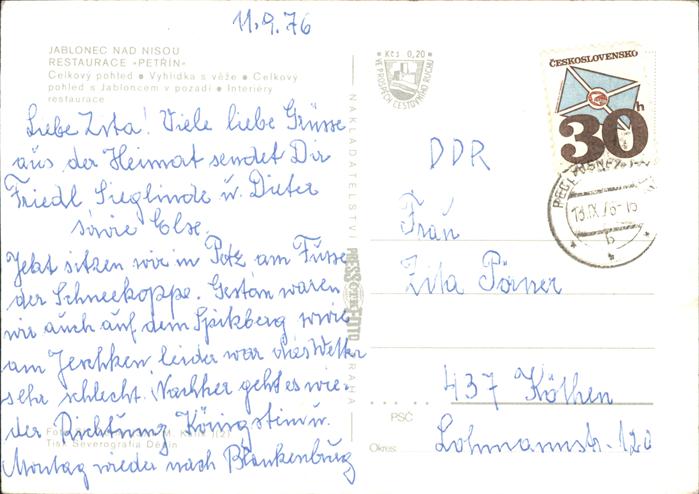 11.9.76
JABLONEC NAD NISOU
RESTAURACE »PETŘÍN«
Celkový pohled ● Vyhlídka s věže ● Celkový
pohled s Jabloncem v pozadí ● Interiéry
restaurace
Liebe Zita! Viele liebe Grüsse
aus der Heimat sendet Dir
Friedl Sieglinde u. Dieter
sowie Else.
Jetzt sitzen wir in Petz am Fusse
der Schneekoppe. Gestern waren
wir auch auf dem Spitzberg sowie
am Jeschken leider war das Wetter
sehr schlecht. Nachher geht es wie-
der Richtung Königstein u.
Montag wieder nach Blankenburg
Tisk Severografia Děčín
NAKLADATELSTVÍ
PRESSFOTO
PRAHA
Kčs 0,20
VE PROSPĚCH CESTOVNÍHO RUCHU
ČESKOSLOVENSKO
30h
13.IX.76-15
b
DDR
Frau
Zita Pörner
437 Köthen
PSČ
Okres
Lohmannstr. 120